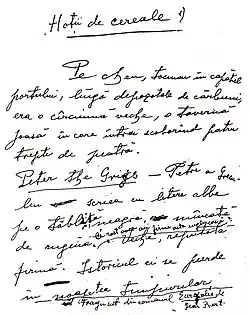 Hoții de cereale 1)
Pe cheu, tocmai în capătul
portului, lîngă depozitele de cărbuni
era o cîrciumă veche, o tavernă
joasă în care intrai scoborînd patru
trepte de piatră.
Peter the Griegs — Petre a Grecu-
lui — scria cu litere albe
pe o tăbliță neagră, mîncată
de rugină,
Veche, reputată
firmă. Istoricul ei se pierde
în noaptea timpurilor,
1) Fragment din romanul Europolis de
Jean Bart.